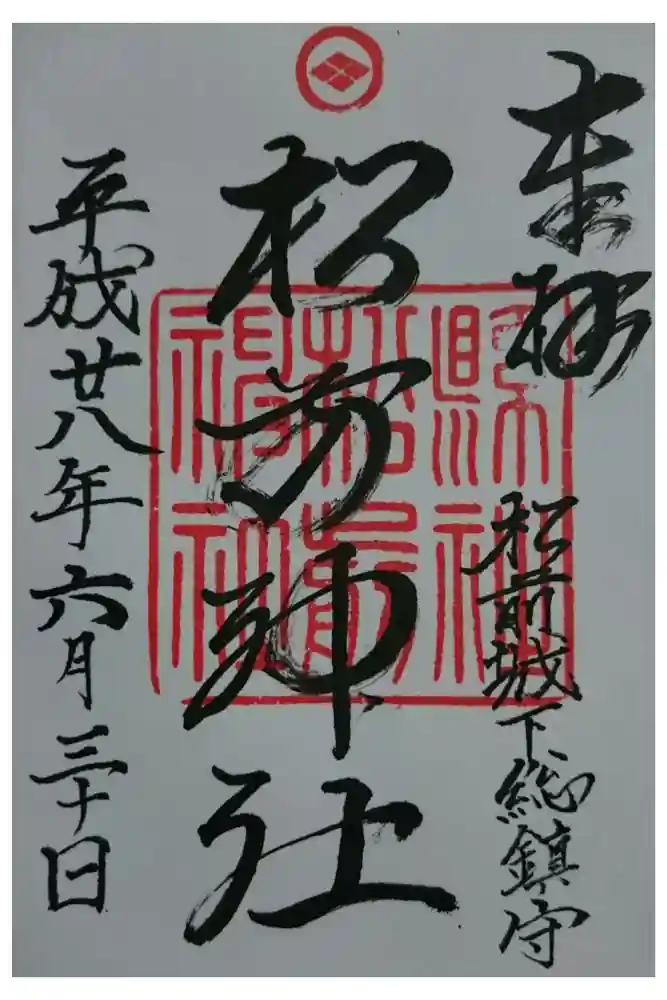 奉拝
松前城下総鎮守
松前神社
平成廿八年六月三十日
縣
松前
神社